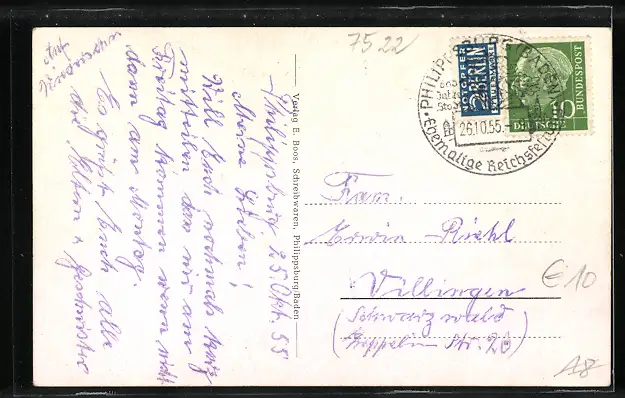 Philippsburg 25. Okt. 55
Meine Lieben!
Will Euch nochmals kurz
mitteilen das wir am
Freitag kommen wenn nicht
dann am Montag.
Es grüßt Euch alle
die Eltern u. Geschwister
Verlag E. Boos, Schreibwaren, Philippsburg/Baden
7522
NOTOPFER
2 BERLIN
STEUERMARKE
DEUTSCHE
BUNDESPOST
10
PHILIPPSBURG (BADEN)
26.10.55.
Ehemalige Reichsfestung
Fam.
Erwin Riehl
Villingen
(Schwarzwald
Zeppelin Str. 20)
€10
A8